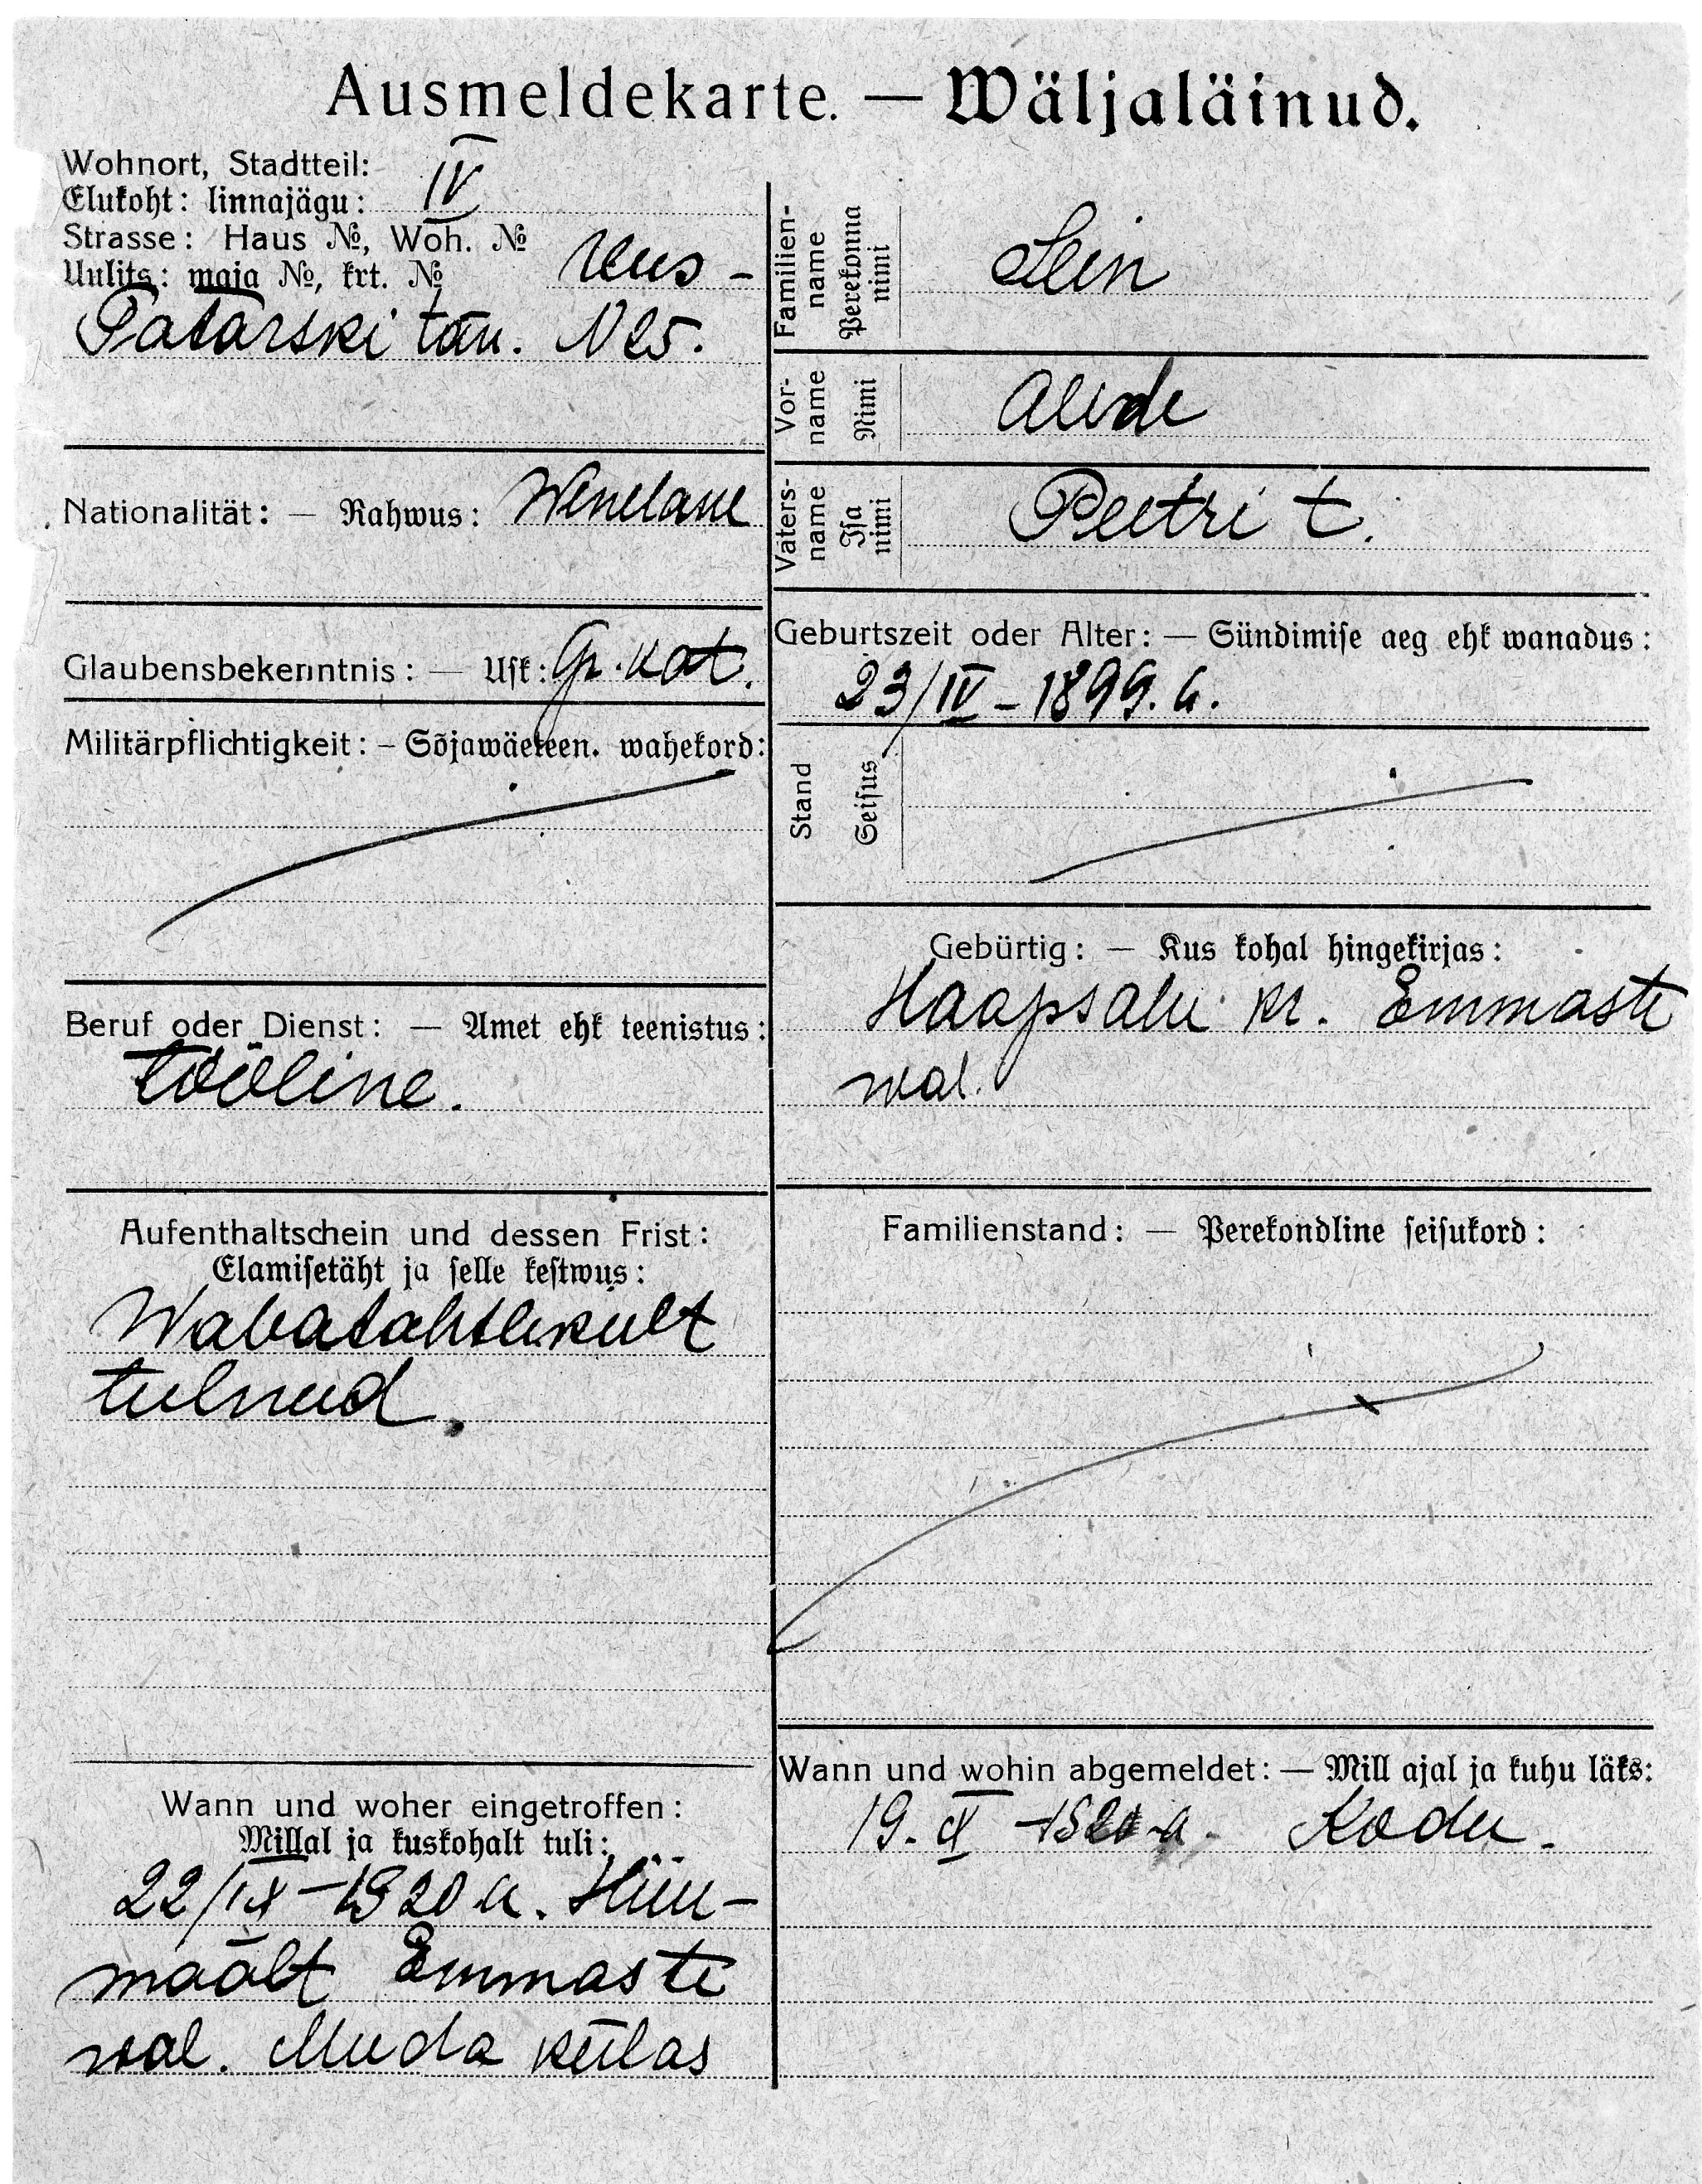 Ausmeldekarte. — Wäljaläinud.
Wohnort, Stadtteil:
Elukoht: linnajägu: IV
Strasse: Haus №, Woh. №
Uulits: maja №, krt. № Uus-
Tatarski tän. N 25.
Nationalität: — Rahwus: Wenelane
Glaubensbekenntnis: — Usk: Gr. kat.
Militärpflichtigkeit: – Sõjawäeteen. wahekord:
Beruf oder Dienst: — Amet ehk teenistus:
tööline.
Aufenthaltschein und dessen Frist:
Elamisetäht ja selle kestwus:
Wabatahtlikult
tulnud.
Wann und woher eingetroffen:
Millal ja kuskohalt tuli:
22/IX–1920 a. Hiiu-
maalt Emmaste
wal. Muda külas
Familien-
name
Perekonna
nimi
Lein
Vor-
name
Nimi
Alide
Vaters-
name
Isa
nimi
Peetri t.
Geburtszeit oder Alter: — Sündimise aeg ehk wanadus:
23/IV – 1899. a.
Stand
Seisus
Gebürtig: — Kus kohal hingekirjas:
Haapsalu kr. Emmaste
wal.
Familienstand: — Perekondline seisukord:
Wann und wohin abgemeldet: — Mill ajal ja kuhu läks:
19. X –1920 a. Kodu.